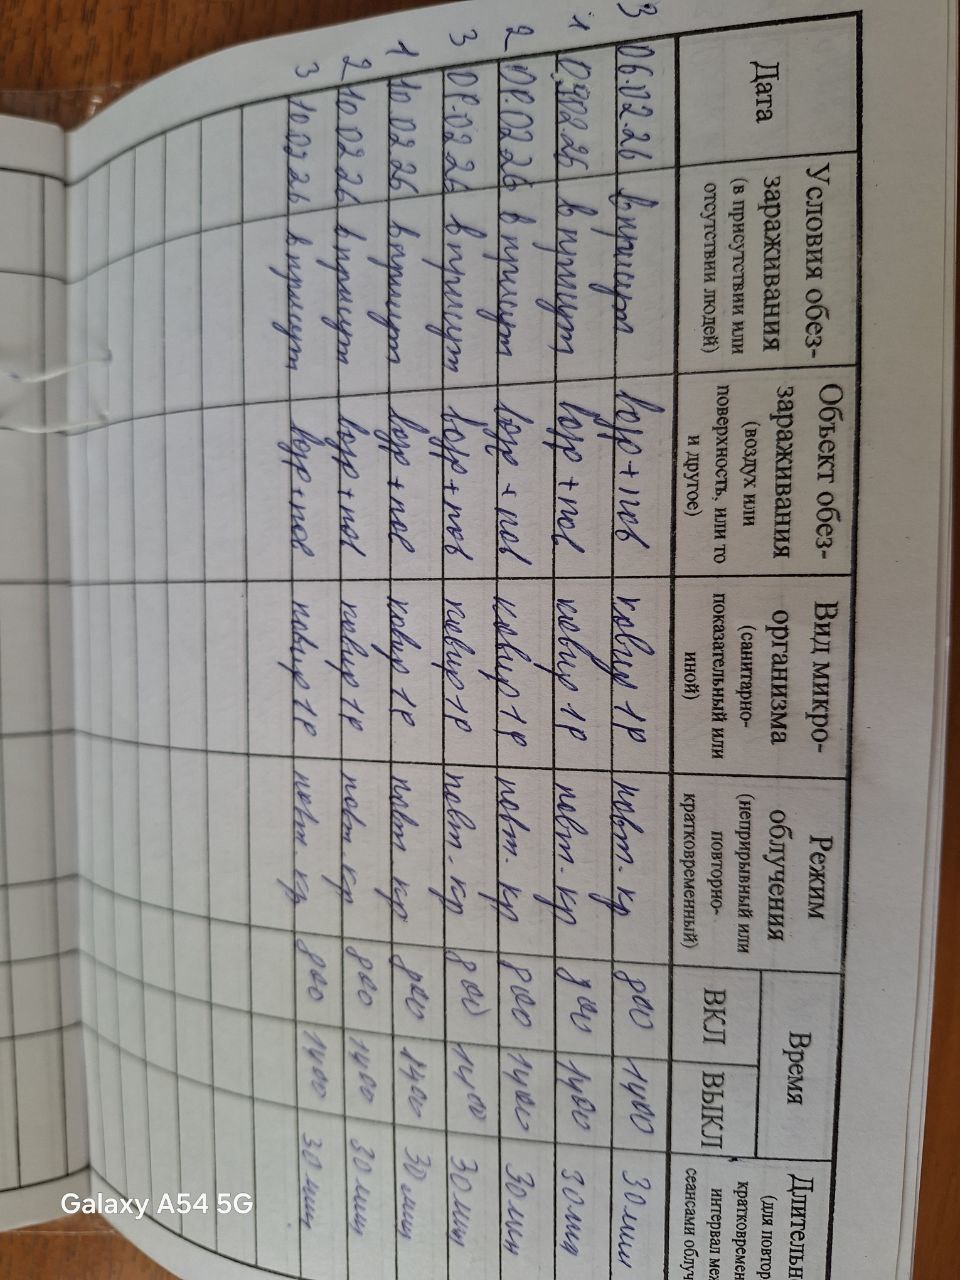 Дата
Условия обез-
зараживания
(в присутствии или
отсутствии людей)
Объект обез-
зараживания
(воздух или
поверхность, или то
и другое)
Вид микро-
организма
(санитарно-
показательный или
иной)
Режим
облучения
(неприрывный или
повторно-
кратковременный)
Время
ВКЛ
ВЫКЛ
Длительн
(для повтор
кратковремен
интервал меж
сеансами облуч
3 06.02.26 в присут возд+пов повт-кр 800 1400 30 мин
1 02.26 в присут возд+пов повт-кр 800 1400 30 мин
2 09.02.26 в присут возд+пов повт-кр 800 1400 30 мин
3 09.02.26 в присут возд+пов повт-кр 800 1400 30 мин
1 10.02.26 в присут возд+пов повт-кр 800 1400 30 мин
2 10.02.26 в присут возд+пов повт-кр 800 1400 30 мин
3 10.02.26 в присут возд+пов повт-кр 800 1400 30 мин
Galaxy A54 5G